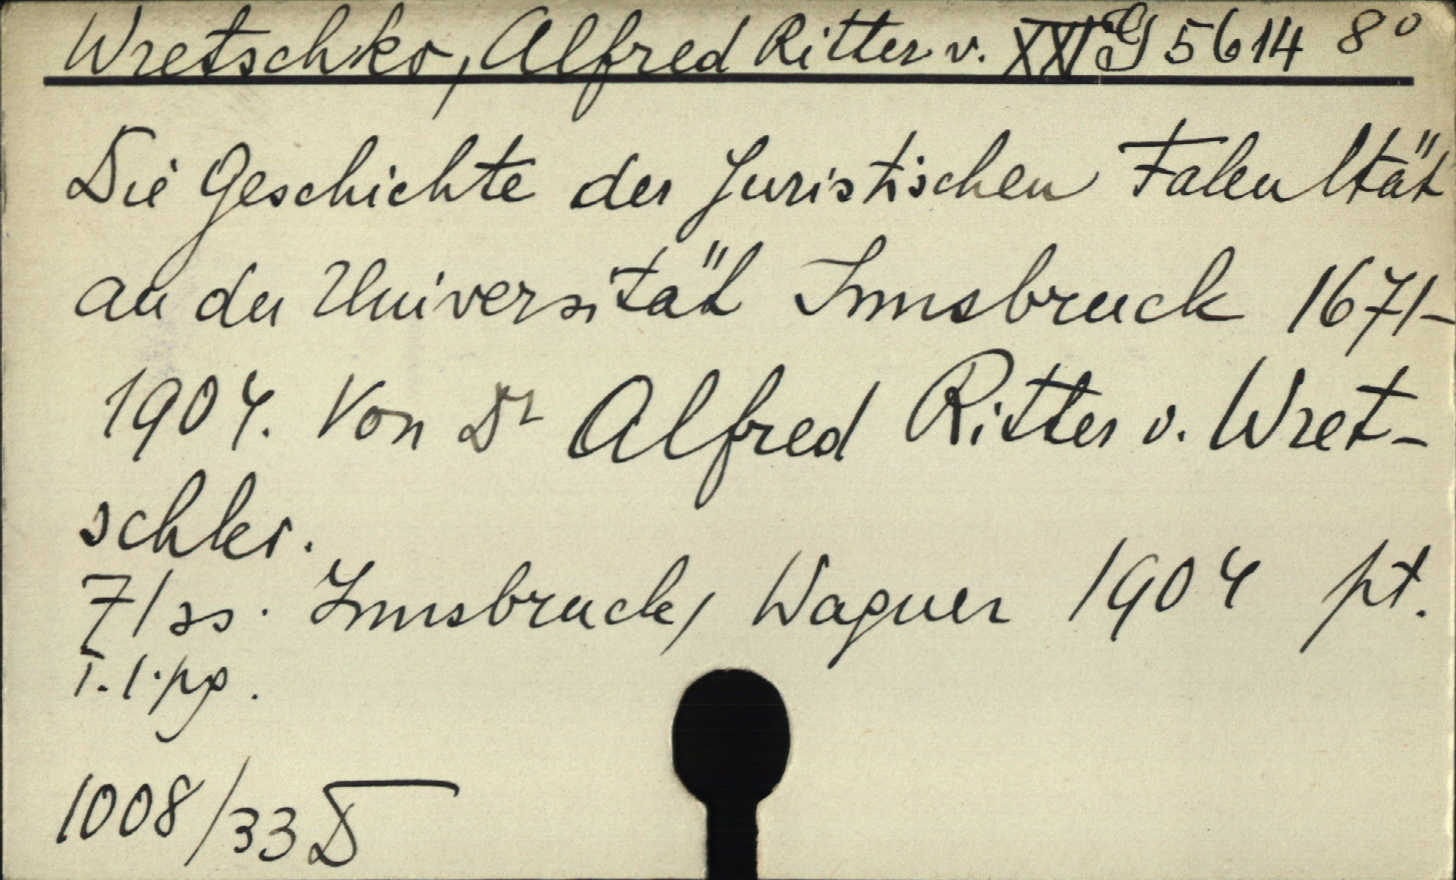 Wretschko, Alfred Ritter v. XXI G 5614 8°
Die Geschichte der Juristischen Fakultät
an der Universität Innsbruck 1671-
1904. Von Dr Alfred Ritter v. Wret-
schko.
71 ss. Innsbruck, Wagner 1904 pt.
T. 1. pg.
1008/33 D